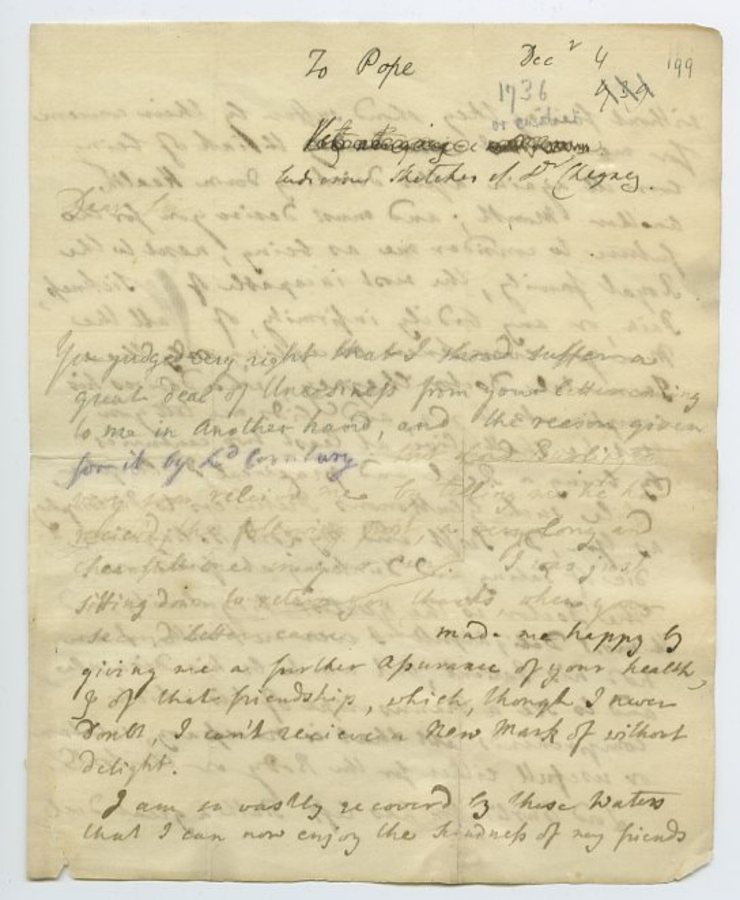 To Pope Dec r 4 199
1736
or earlier
Ludicrous Sketches of Dr Cheyney.
Dear Sr
You judged very right that I shoud suffer a
great deal of Uneasiness from your letter coming
to me in another hand, and the reason given
for it by Ld Cornbury
very soon relieved me by telling me he had
reciev'd the following post, a very long and
I was just
sitting down to return you thanks when
letter came made me happy by
giving me a further Assurance of your health,
& of that friendship, which, though I never
Doubt, I can't recieve a New Mark of without
delight.
I am so vastly recoverd by these Waters
that I can now enjoy the kindness of my friends